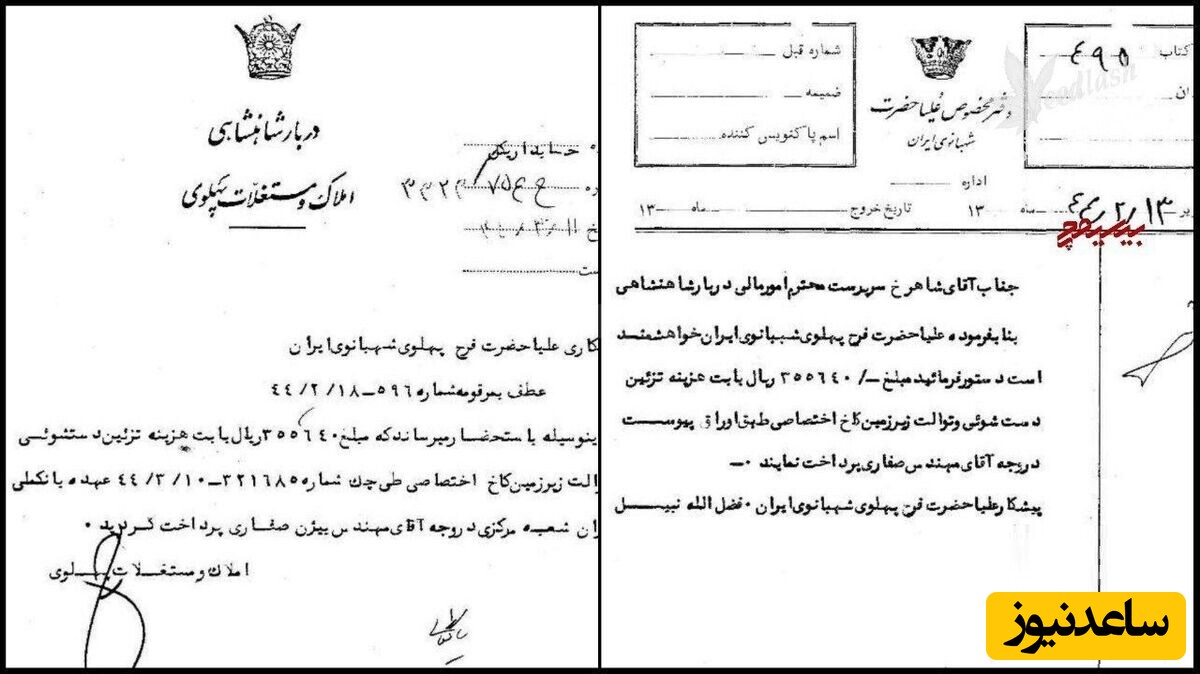 دربار شاهنشاهی
املاک و مستغلات پهلوی
حسابداریکل
۳۳۲۳ / ۷۵ح ع
کاری علیاحضرت فرح پهلوی شهبانوی ایران
عطف بمرقومه شماره ۵۹۶–۴۴/۲/۱۸
ینوسیله باستحضار میرساند که مبلغ ۳۵۵۶۴۰ ریال بابت هزینه تزئین دستشوئی
والت زیرزمین کاخ اختصاصی طی چك شماره ۳۲۱۶۸۵–۴۴/۳/۱۰ عهده بانکملی
ران شعبه مرکزی در وجه آقای مهندس بیژن صفاری پرداخت گردید ۰
املاك و مستغلات پهلوی
شماره قبل
ضمیمه
اسم پاکنویس کننده
دفتر مخصوص علیاحضرت
شهبانوی ایران
کتاب ۴۹۵
اداره
۴۴/۲/۱۳ ماه ۱۳ تاریخ خروج ماه ۱۳
بیسیمچی
eedlash
جناب آقای شاهرخ سرپرست محترم امور مالی دربار شاهنشاهی
بنا بفرموده علیاحضرت فرح پهلوی شهبانوی ایران خواهشمند
است دستور فرمائید مبلغ –/۳۵۵۶۴۰ ریال بابت هزینه تزئین
دست شوئی و توالت زیرزمین کاخ اختصاصی طبق اوراق پیوست
در وجه آقای مهندس صفاری پرداخت نمایند ۰–
پیشکار علیاحضرت فرح پهلوی شهبانوی ایران ۰ فضل الله نبیل
ساعدنیوز